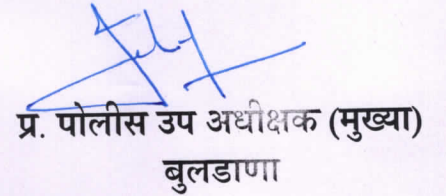 प्र. पोलीस उप अधीक्षक (मुख्या)
बुलडाणा